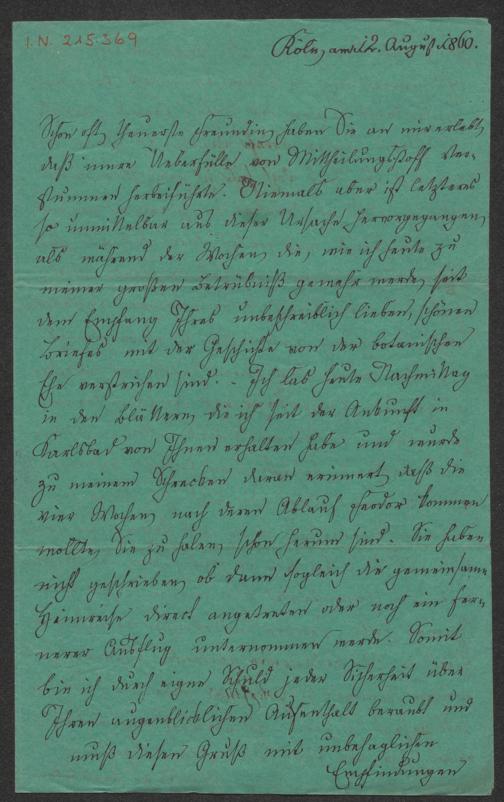 I.N. 215.369
Köln, am 12. August 1860.
Schon oft, theuerste Freundin, haben Sie an mir erlebt,
daß innere Ueberfülle von Mittheilungsstoff Ver-
stummen herbeiführte. Niemals aber ist letzteres
so unmittelbar aus dieser Ursache hervorgegangen,
als während der Wochen, die, wie ich heute zu
meiner großen Betrübniß gewahr werde, seit
dem Empfang Ihres unbeschreiblich lieben, schönen
Briefes mit der Geschichte von der botanischen
Ehe verstrichen sind. - Ich las heute Nachmittag
in den Blättern, die ich seit der Ankunft in
Karlsbad von Ihnen erhalten habe und wurde
zu meinem Schrecken daran erinnert, daß die
vier Wochen, nach deren Ablauf Feodor kommen
wollte, Sie zu holen, schon herum sind. Sie haben
nicht geschrieben, ob dann sogleich die gemeinsame
Heimreise direct angetreten oder noch ein fer-
nerer Ausflug unternommen werde. Somit
bin ich durch eigne Schuld jeder Sicherheit über
Ihren augenblicklichen Aufenthalt beraubt und
muß diesen Gruß mit unbehaglichen
Empfindungen